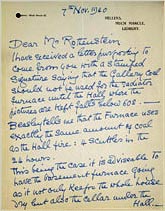 7th Nov. 1940
HELLENS,
MUCH MARCLE,
LEDBURY.
Dear Mr Rothenstein
I have received a letter purporting to
come from you with a stamped
signature saying that the Gallery coal
should not be used for the radiator
furnace until the Hall where the
pictures are kept falls below 60°.
Beasley tells me that the Furnace uses
exactly the same amount of coal
as the Hall fire: 4 scuttles in the
24 hours.
This being the case it is advisable to
have the basement furnace going
as it not only keeps the whole house
dry but also the cellar under the
Hall.